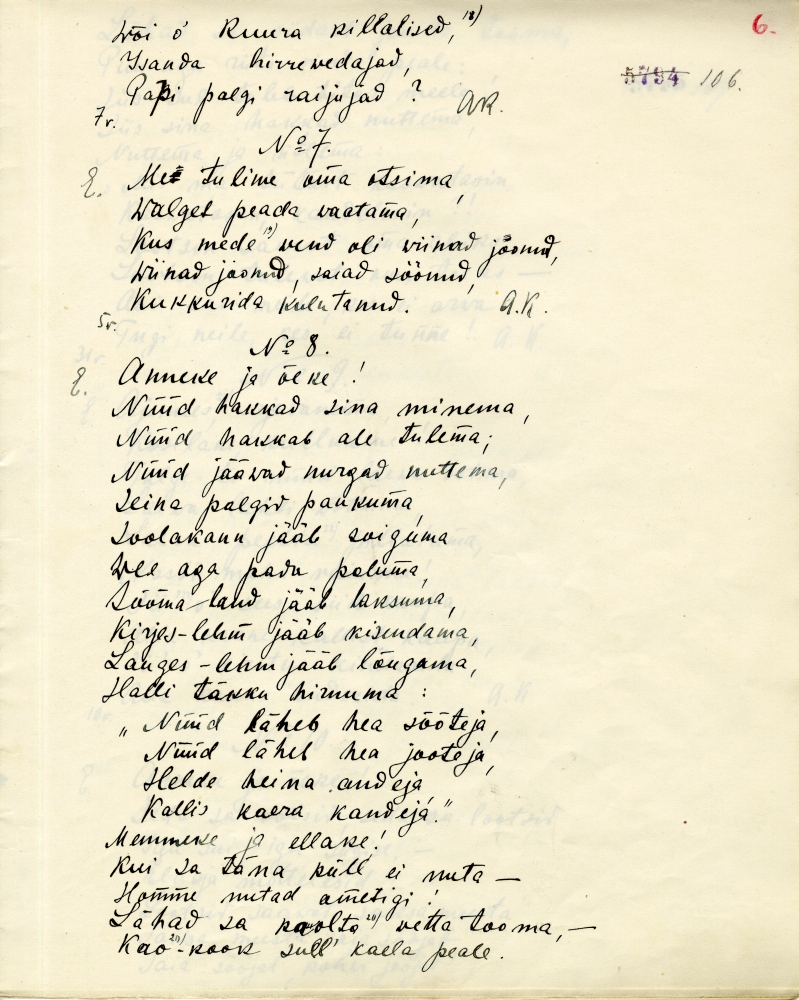 6.
5734 106.
Wõi o' Kuura killalised, 18)
Isanda hirrewedajad,
Papi palgi raijujad? AK.
7r.
No 7.
E. Me tulime oma otsima,
Walget peada waatama,
Kus mede 19) wend oli wiinad joonud,
Wiinad joonud, saiad söönud,
Kukkurida kulutanud. A.K.
5r.
No 8.
E. Anneke ja õeke!
Nüüd hakkad sina minema,
Nüüd hakkab ale tulema;
Nüüd jääwad nurgad nuttema,
Seina palgid paukuma,
Soolakann jääb soiguma
Wee aga padu paluma,
Sööma-laud jääb laksuma,
Kirjes-lehm jääb kisendama,
Lauges-lehm jääb lõugama,
Halli täkku hirnuma:
„Nüüd läheb hea sööteja,
Nüüd läheb hea jooteja,
Helde heina andeja
Kallis kaera kandeja."
Memmeke ja ellake!
Kui sa täna küll ei nuta —
Homme nutad ametigi!
Lähad sa kaolta 20) vetta tooma, —
Kao 21)-kook sull' kaela peale.